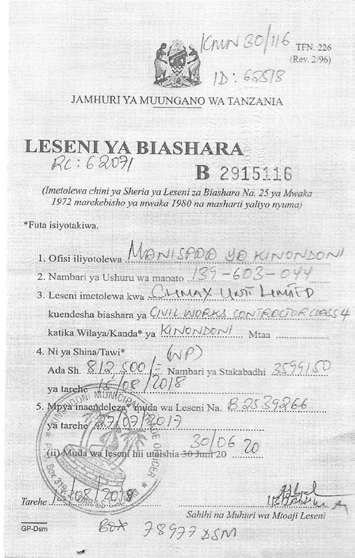 KMN 30/116
TFN. 226
(Rev. 2/96)
ID: 66518
JAMHURI YA MUUNGANO WA TANZANIA
LESENI YA BIASHARA
RC: 62071
B 2915116
(Imetolewa chini ya Sheria ya Leseni za Biashara Na. 25 ya Mwaka
1972 marekebisho ya mwaka 1980 na masharti yaliyo nyuma)
*Futa isiyotakiwa.
1. Ofisi iliyotolewa MANISPAA YA KINONDONI
2. Nambari ya Ushuru wa mapato 139-603-044
3. Leseni imetolewa kwa CLIMAX UNIT LIMITED
kuendesha biashara ya CIVIL WORKS CONTRACTOR CLASS 4
katika Wilaya/Kanda* ya KINONDONI Mtaa
4. Ni ya Shina/Tawi* (NP)
Ada Sh. 812,500/= Nambari ya Stakabadhi 3599150
ya tarehe 15/08/2018
5. Mpya inaendeleza* muda wa Leseni Na. B 2539266
ya tarehe 27/07/2017
(ii) Muda wa leseni hii utaishia 30 Juni 20
30/06 20
KINONDONI MUNICIPAL
TRADE OFFICER
Tarehe /08/2018
Sahihi na Muhuri wa Mtoaji Leseni
GP-Dsm
BOX 78977 DSM